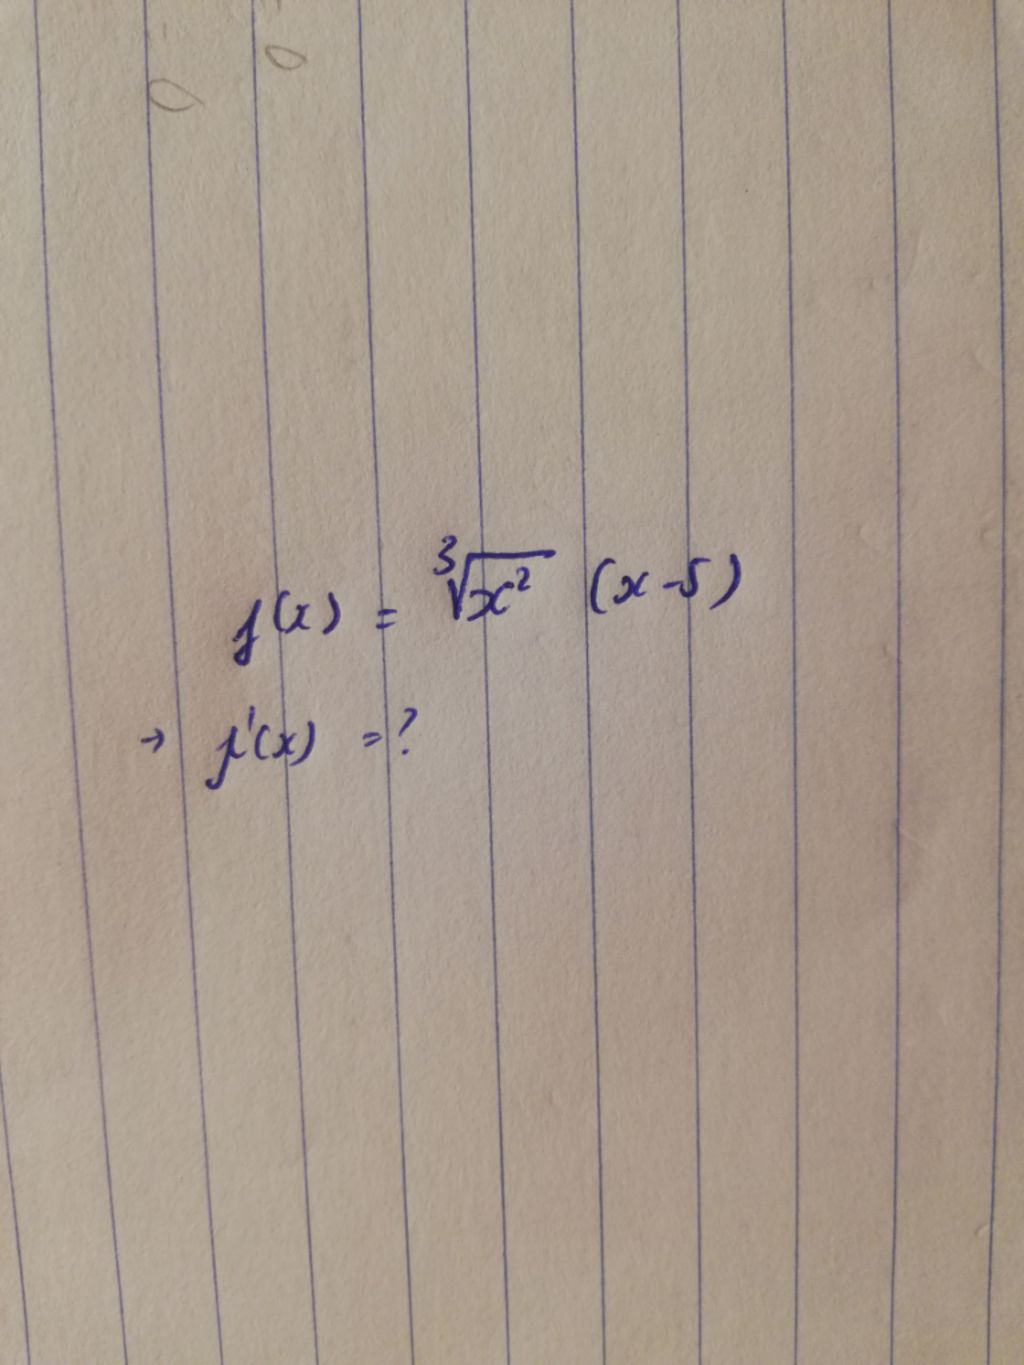 f(x) = ∛x² (x-5)
→ f'(x) = ?